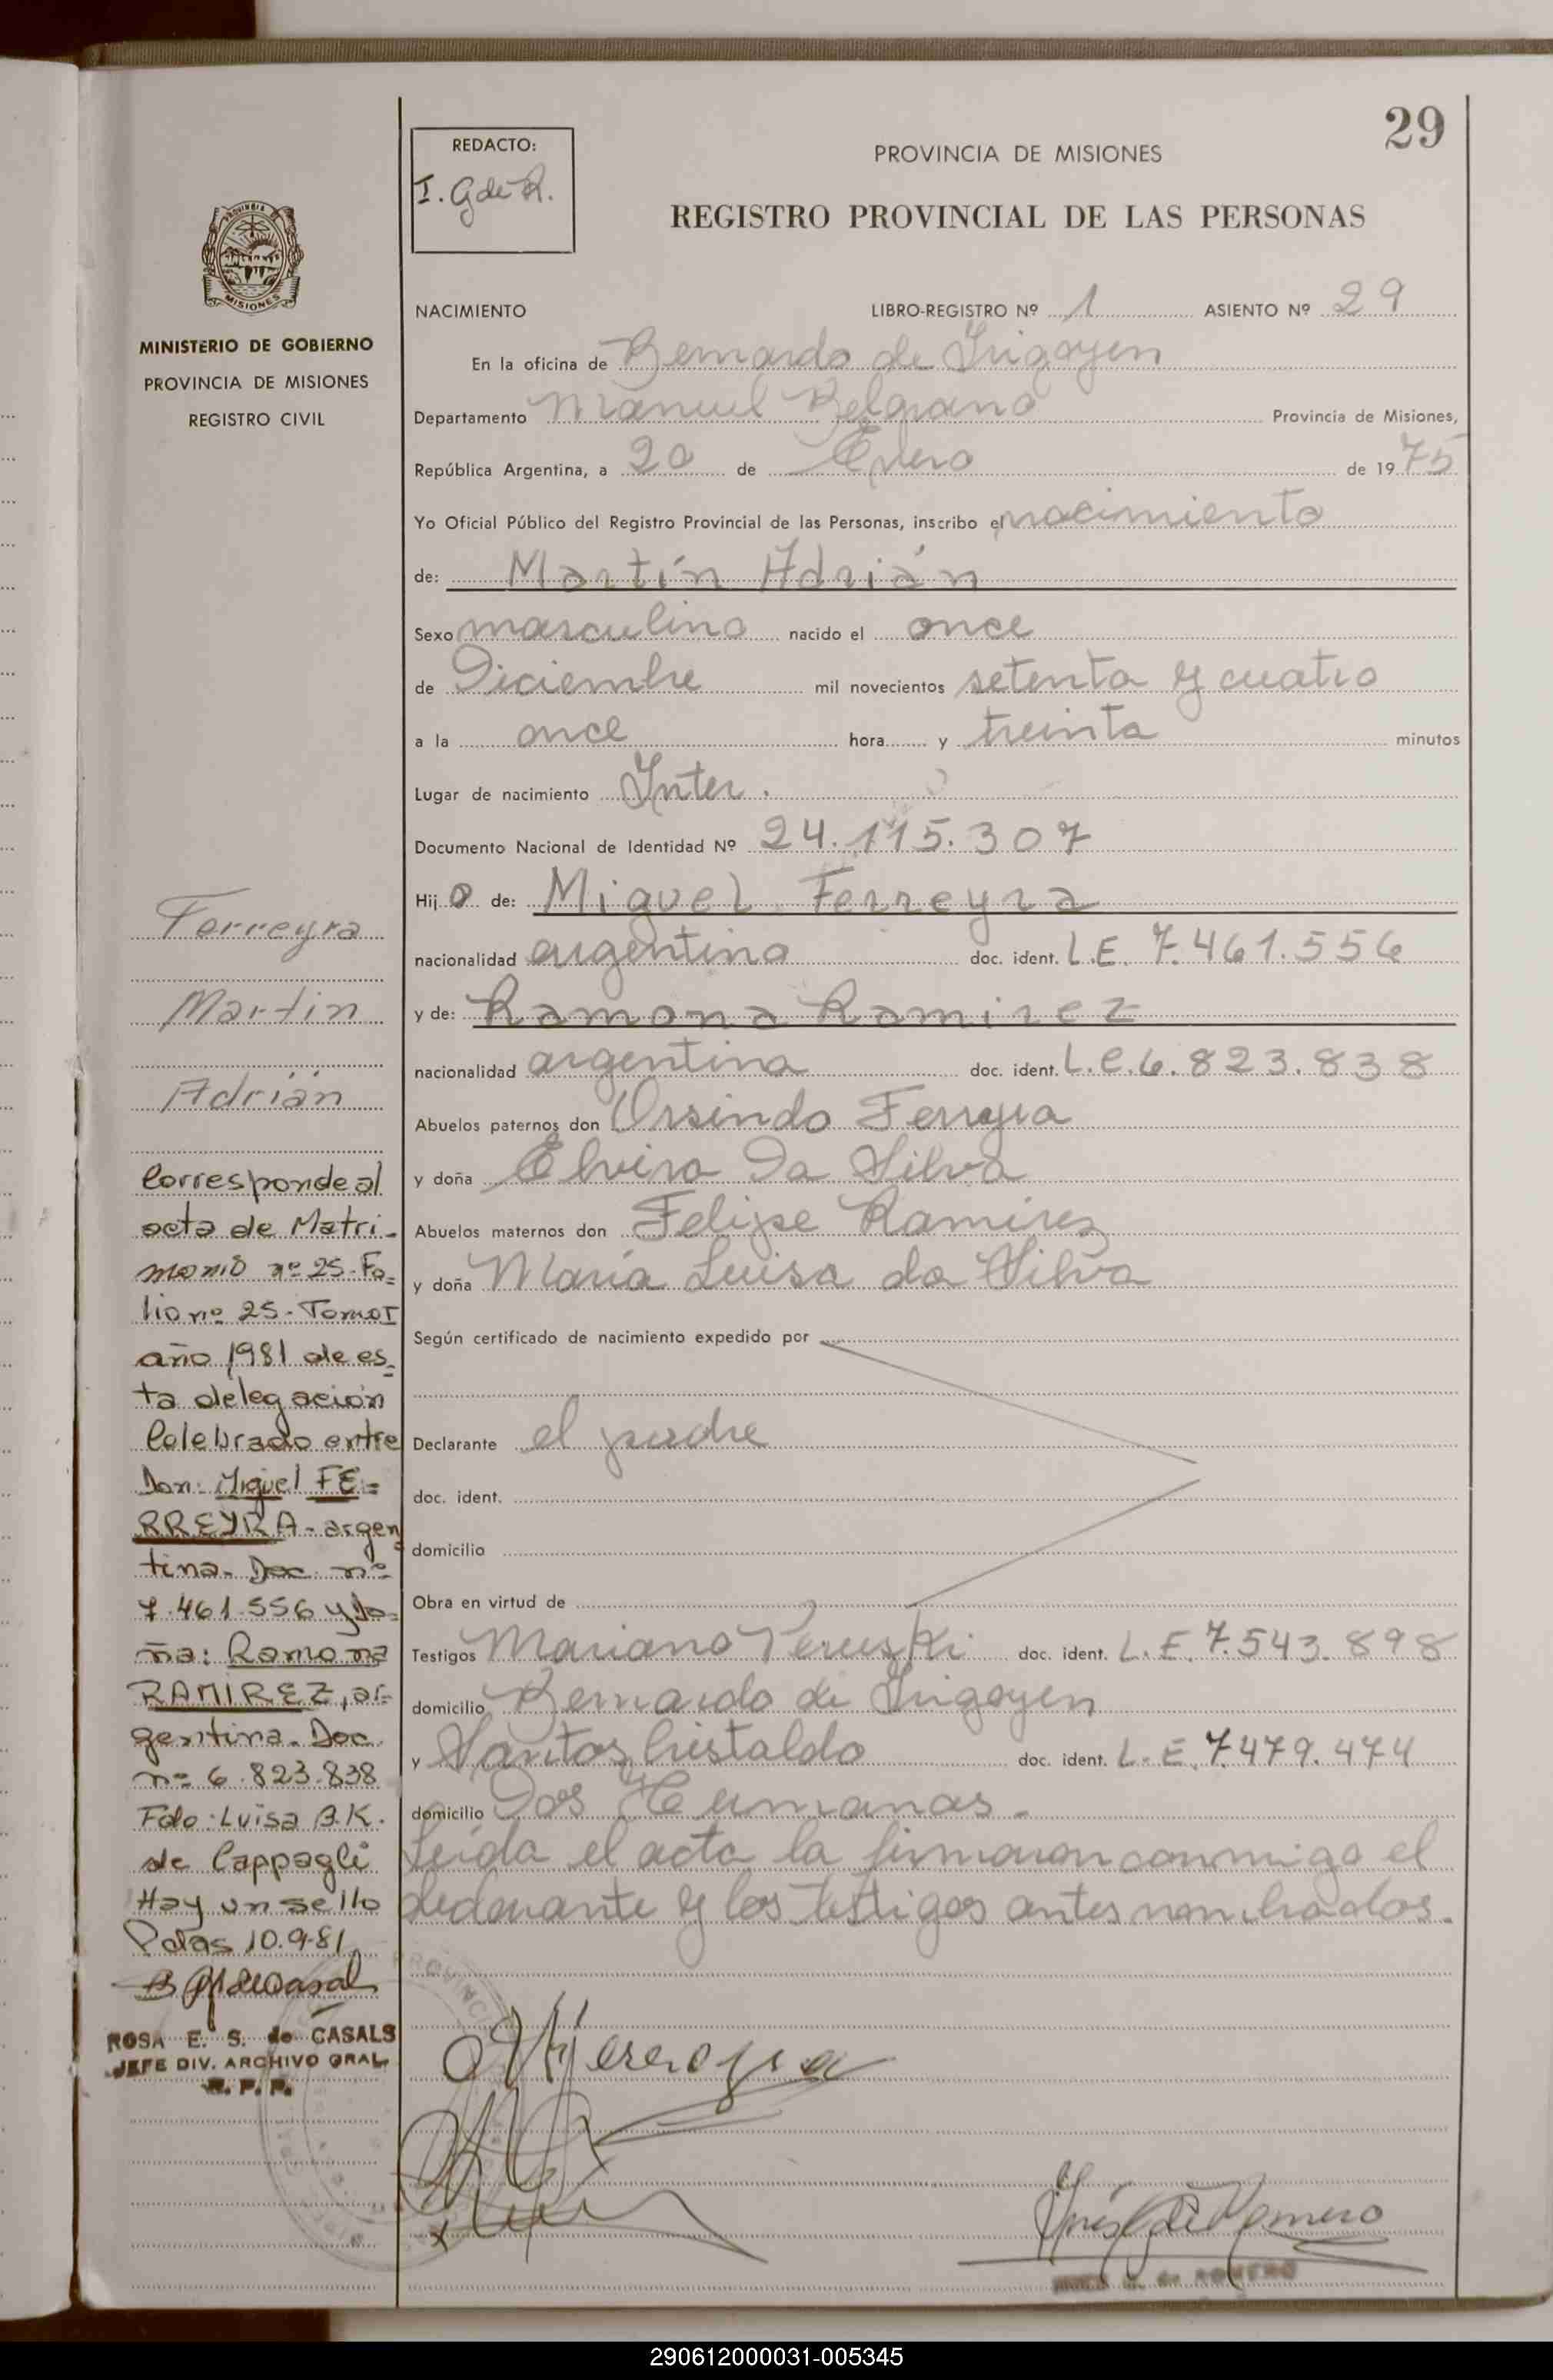 29
REDACTO:
I. G de R.
PROVINCIA DE MISIONES
REGISTRO PROVINCIAL DE LAS PERSONAS
NACIMIENTO LIBRO-REGISTRO Nº 1 ASIENTO Nº 29
En la oficina de Bernardo de Irigoyen
Departamento Manuel Belgrano Provincia de Misiones,
República Argentina, a 20 de Enero de 1975
Yo Oficial Público del Registro Provincial de las Personas, inscribo el nacimiento
de: Martín Adrián
Sexo masculino nacido el once
de Diciembre mil novecientos setenta y cuatro
a la once hora y treinta minutos
Lugar de nacimiento Inter.
Documento Nacional de Identidad Nº 24.115.307
Hijo de: Miguel Ferreyra
nacionalidad argentina doc. ident. L.E. 7.461.556
y de: Ramona Ramirez
nacionalidad argentina doc. ident. L.C. 6.823.838
Abuelos paternos don Orsindo Ferreyra
y doña Elvira Da Silva
Abuelos maternos don Felipe Ramirez
y doña María Luisa da Silva
Según certificado de nacimiento expedido por
Declarante el padre
doc. ident.
domicilio
Obra en virtud de
Testigos Mariano Peruski doc. ident. L.E. 7.543.898
domicilio Bernardo de Irigoyen
y Santos Cristaldo doc. ident. L.E. 7.479.474
domicilio Dos Hermanas.
Leída el acta la firmaron conmigo el
declarante y los testigos antes nombrados.
MINISTERIO DE GOBIERNO
PROVINCIA DE MISIONES
REGISTRO CIVIL
Ferreyra
Martin
Adrián
Corresponde al
acta de Matri-
monio nº 25-Fo=
lio nº 25-Tomo I
año 1981 de es=
ta delegación
Celebrado entre
Don: Miguel FE=
RREYRA-argen
tina. Doc. nº
7.461.556 y do=
ña: Ramona
RAMIREZ, ar=
gentina. Doc.
nº 6.823.838
Fdo: Luisa B.K.
de Cappagli
Hay un sello
Pdas 10.9.81
ROSA E. S. de CASALS
JEFE DIV. ARCHIVO GRAL.
R. P. P.
Inés G de Romero
INES G. de ROMERO
290612000031-005345